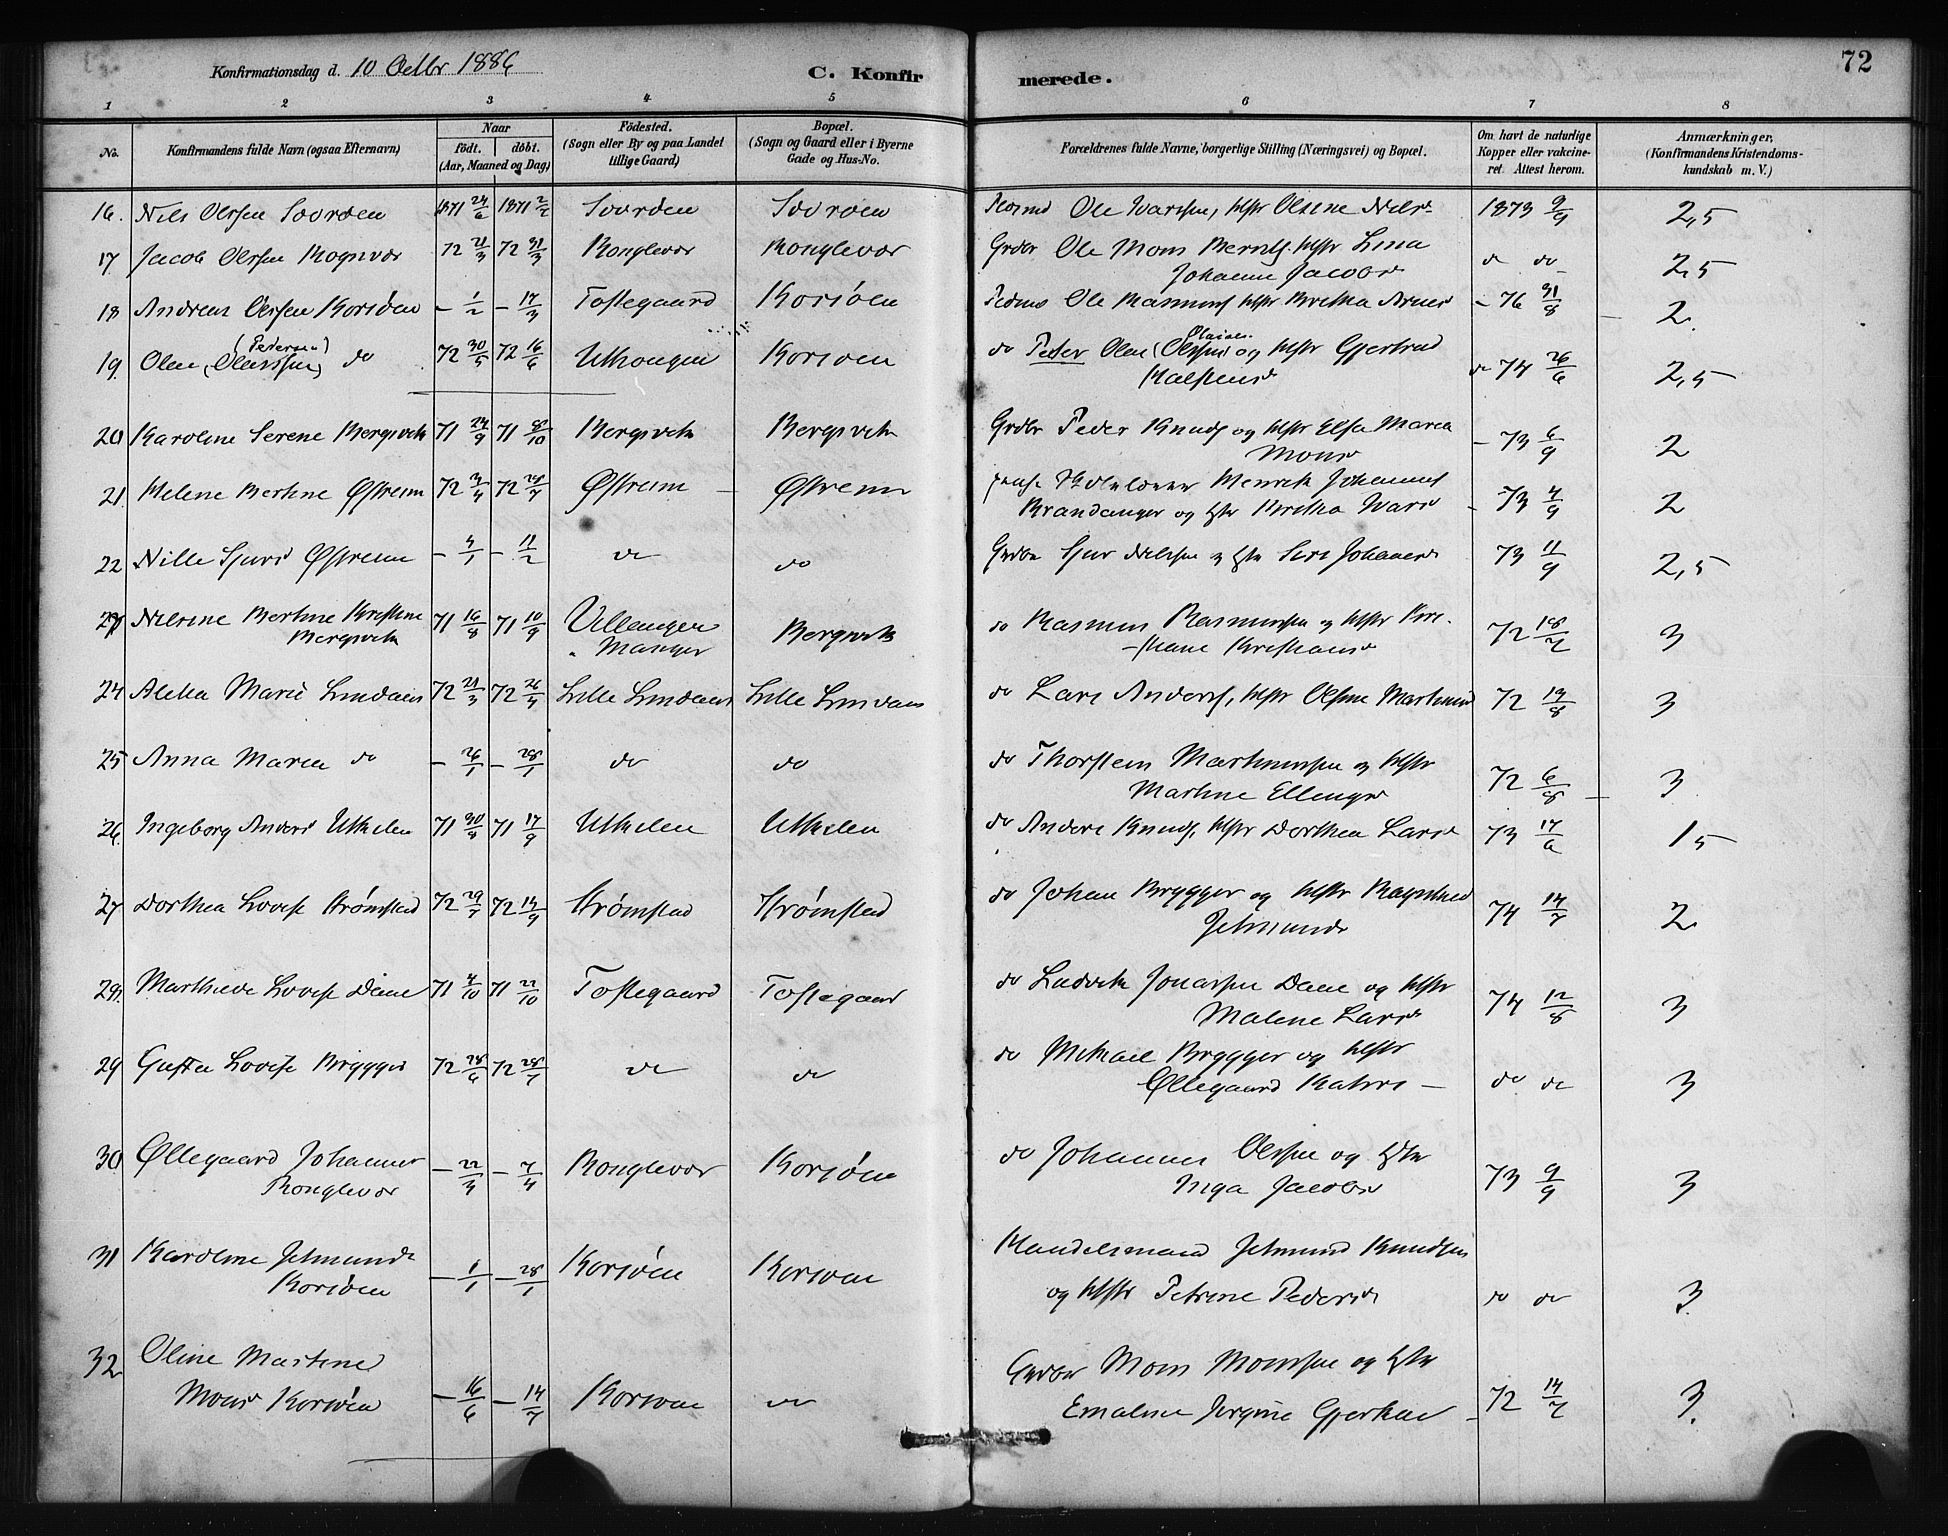 Konfirmationsdag d. 10 Octbr 1886
C. Konfirmerede.
72
1 2 3 4 5 6 7 8
No.
Konfirmandens fulde Navn (ogsaa Efternavn)
Naar
födt. döbt.
(Aar, Maaned og Dag)
Födested.
(Sogn eller By og paa Landet
tillige Gaard)
Bopæl.
(Sogn og Gaard eller i Byerne
Gade og Hus-No.
Forældrenes fulde Navne, borgerlige Stilling (Næringsvei) og Bopæl.
Om havt de naturlige
Kopper eller vakcine-
ret. Attest herom.
Anmærkninger,
(Konfirmandens Kristendoms-
kundskab m. V.)
16. Nils Olssen 1871 24/6 1871 2/7 Ole Olsene Nilsd 1873 9/9 2,5
17 Jacob Olssen 72 21/3 72 31/3 Ronglevær Ronglevær Grdbr Ole Mons hstr Lina
Johanne Jacobsd do do 2,5
18 Andreas Olssen Korsöen - 1/2 - 17/3 Toftegaard Korsöen Ole Rasmuss hstr Britha - 76 31/8 2.
(Pedersen)
19. Olai do 72 30/5 72 16/6 Korsöen do Peder Olai (Olssen) og hstr Gjertrud
do 74 26/6 2,5
20 Karoline Serene Bergsvik 71 24/9 71 8/10 Bergsvik Bergsvik Grdbr Peder Knuds og hstr Elsa Maria
Monsd - 73 6/9 2
21. Helene Bertine Østreim 72 3/4 72 28/7 Østreim Østreim Henrik Johannes
Brandanger og hstr Britha Ivarsd - 73 4/9 2
22 Nille Sjursd Østreim - 4/1 - 11/2 do do Grdbr Sjur Nilssen og hstr Siri Johannesd 73 11/9 2,5
23 Nilsine Bertine Kristine
Bergsvik 71 16/8 71 10/9 Villanger
Manger Bergsvik do Rasmus Rasmussen og hstr Kri-
stiane Kristiansd 72 18/7 3
24 Marie Lindaas 72 21/3 72 26/4 Lille Lindaas Lille Lindaas do Lars Anders, hstr Olsine 72 19/8 3
25 Anna Maria do - 26/1 - 28/1 do do do Thorstein Martinussen og hstr
Martine Ellingsd 72 6/8 3
26. Ingeborg Andersd Utkilen 71 30/4 71 17/9 Utkilen Utkilen do Anders Knuds, hstr Dorthea Larsd 73 17/6 15
27 Dorthea Lovise Strømstad 72 29/7 72 14/9 Strømstad Strømstad do Johan Brygger og hstr Ragnhild
Jetmundsd 74 14/7 2
28. Lovise Daae 71 4/10 71 22/10 Toftegaard Toftegaard do Ludvik Jonassen Daae og hstr
Malene Larsd 74 12/8 3
29 Gusta Lovise Brygger 72 28/6 72 28/7 do do do Mikael Brygger og hstr
Øllegaard do do 3
30 Øllegaard Johannesd
Ronglevær - 22/3 - 7/4 Ronglevær Korsöen do Johannes Olssen og hstr
Inga Jacobsd 73 9/9 3
31 Karoline Jetmundsd
Korsöen - 1/1 - 28/1 Korsöen Korsöen Handelsmand Jetmund Knudsen
og hstr Petrine Pedersd do do 3.
32 Oline Martine
Monsd Korsöen - 16/6 - 14/7 Korsöen do Grdbr Mons Monssen og hstr
Emaline Jergine - 72 14/7 3.